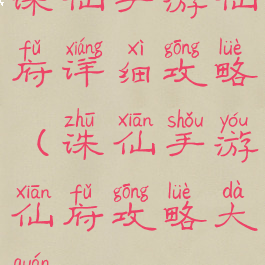 诛仙手游仙
fǔ xiáng xì gōng lüè
府详细攻略
zhū xiān shǒu yóu
（诛仙手游
xiān fǔ gōng lüè dà
仙府攻略大
quán